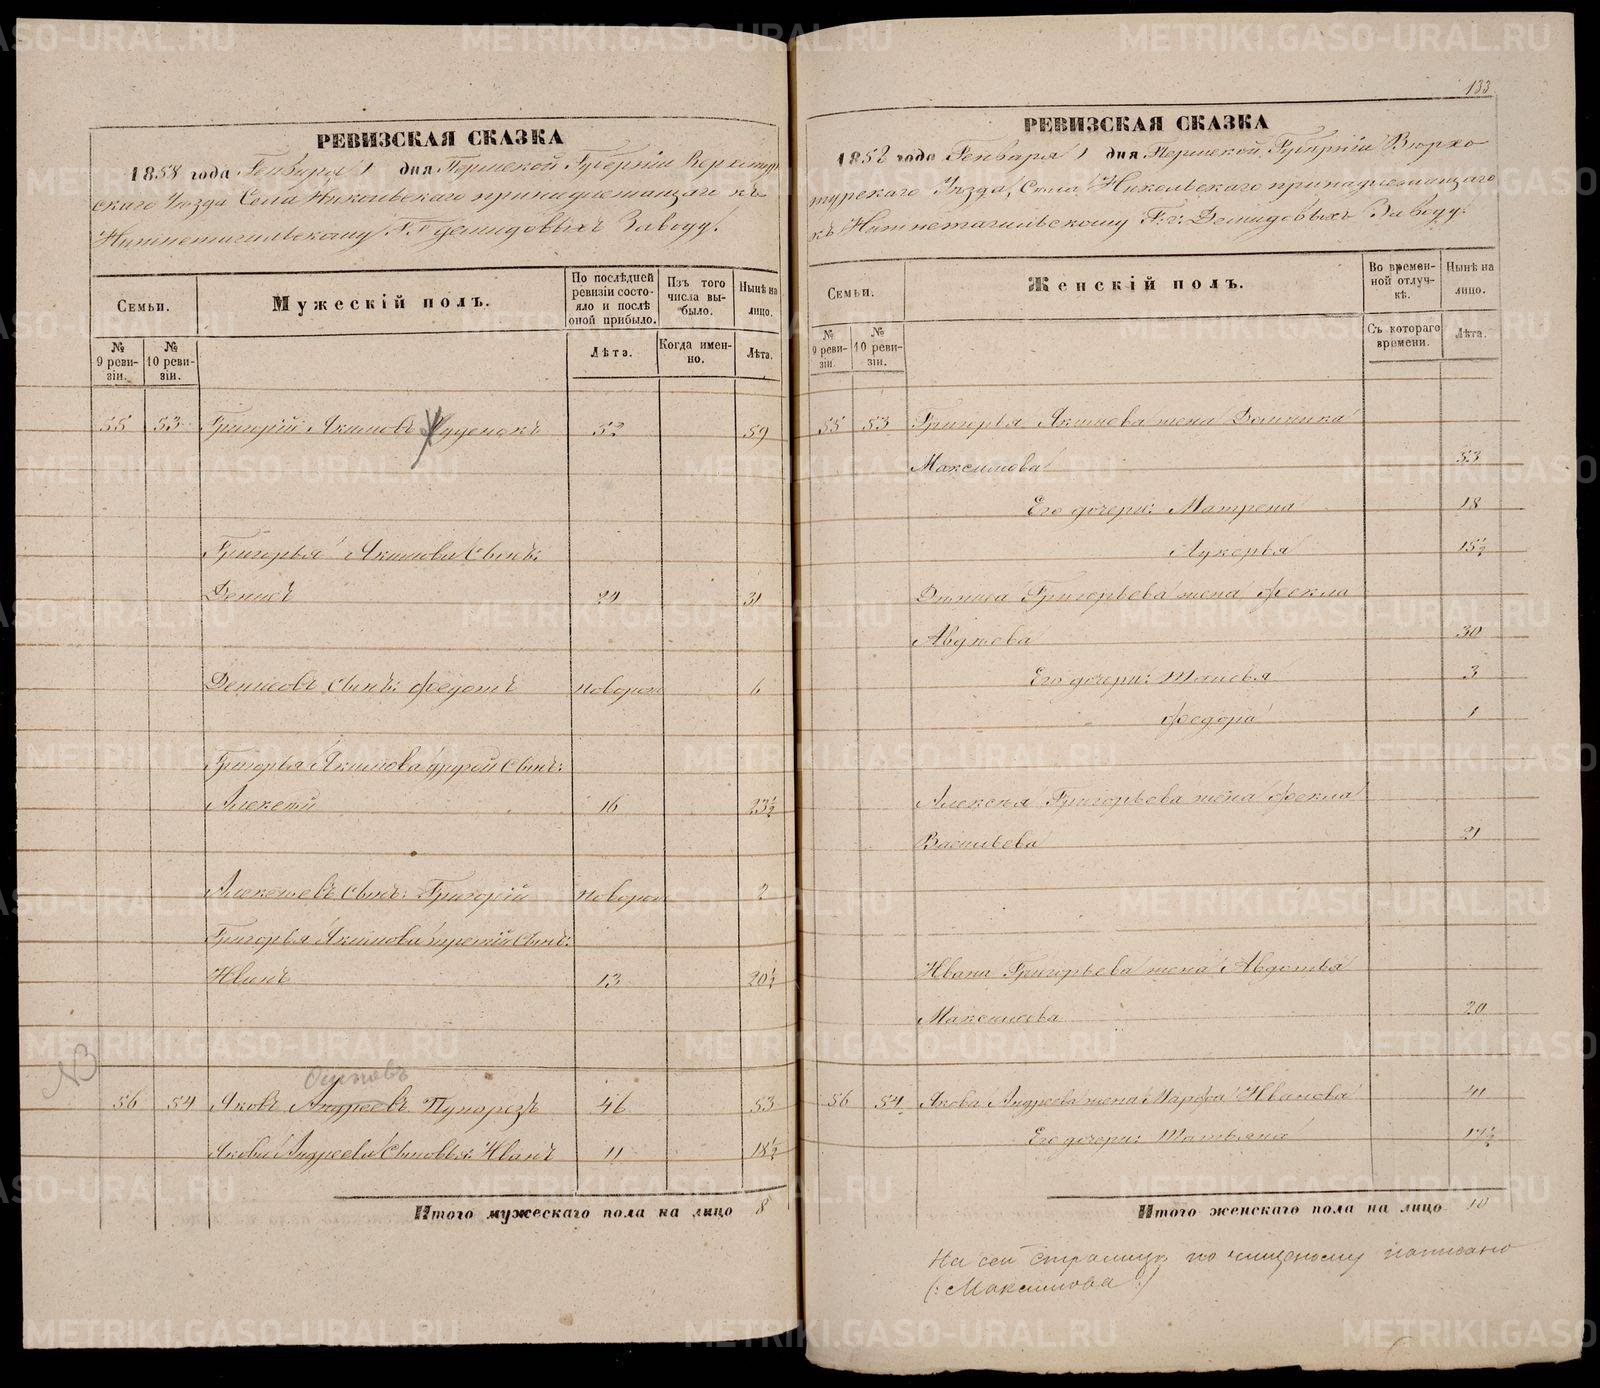 РЕВИЗСКАЯ СКАЗКА
1858 года Генваря 1 дня Пермской Губерніи Верхотур
скаго Уезда Села Никольскаго принадлежащаго къ
Нижнетагильскому Г.Г. Демидовыхъ Заводу.
Семьи.
Мужескій полъ.
По послѣдней ревизіи состояло и послѣ оной прибыло.
Изъ того числа выбыло.
Нынѣ на лицо.
№ 9 ревизіи.
№ 10 ревизіи.
Лѣта.
Когда именно.
Лѣта.
55 53 Григорій Якимовъ 52 59
Григорья Якимова Сынъ:
Денисъ 24 31
Денисовъ сынъ: Федотъ новорож 6
Григорья Якимова другой Сынъ:
Алексѣй 16 23½
Алексѣевъ Сынъ: Григорій новорож 2
Григорья Якимова третій Сынъ:
Иванъ 13 20½
NB
Осиповъ
56 54 Яковъ Андреевъ Пупорезъ 46 53
Якова Андреева Сыновья: Иванъ 11 18½
Итого мужескаго пола на лицо 8
133
РЕВИЗСКАЯ СКАЗКА
1858 года Генваря 1 дня Пермской Губерніи Верхо
турскаго Уезда, Села Никольскаго принадлежащаго
къ Нижнетагильскому Г.г. Демидовыхъ Заводу.
Семьи.
Женскій полъ.
Во временной отлучкѣ.
Нынѣ на лицо.
№ 9 ревизіи.
№ 10 ревизіи.
Съ котораго времени.
Лѣта.
55 53 Григорья Якимова жена Домника
Максимова 53
Его дочери: Матрена 18
Лукерья 15½
Дениса Григорьева жена Фекла
Авдѣева 30
Его дочери: 3
Федора 1
Алексѣя Григорьева жена Фекла
Васильева 21
Ивана Григорьева жена Авдотья
Максимова 20
56 54 Якова Андреева жена Марфа Иванова 41
Его дочери: Татьяна 17½
Итого женскаго пола на лицо 10
На сей страницѣ по чищеному написано
(: Максимова :)
METRIKI.GASO-URAL.RU